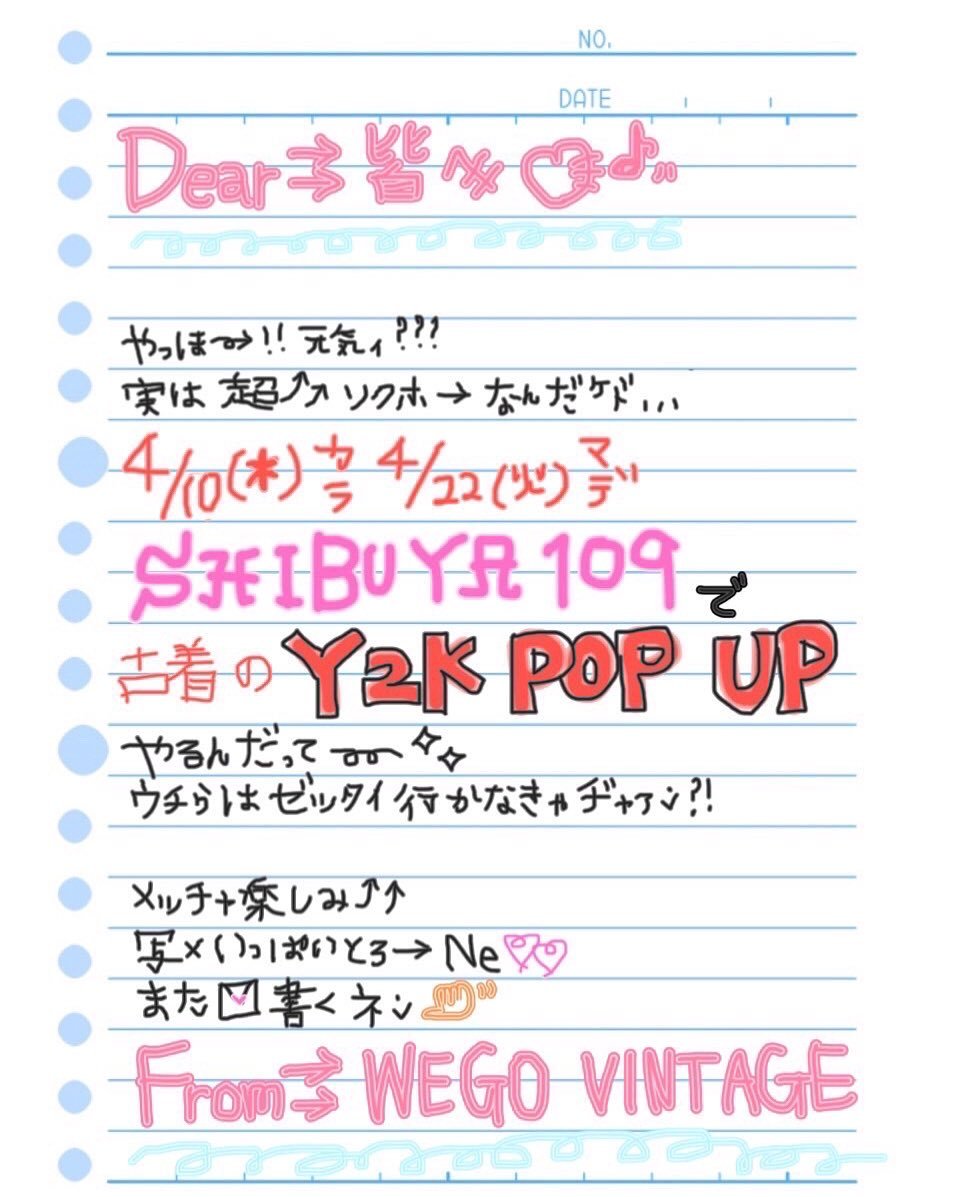 NO.
DATE
Dear→皆々♡ま♪"
やっほ〜→!! 元気ィ???
実は 超⤴↗ソクホ→なんだケド...
4/10(木)カラ 4/22(火)マデ
SHIBUYA109で
古着の Y2K POP UP
やるんだって〜
ウチらはゼッタイ行かなきゃヂャアン?!
メッチャ楽しみ⤴↑
写×いっぱいとろ→Ne♡♡
また 書くネン
From→WEGO VINTAGE